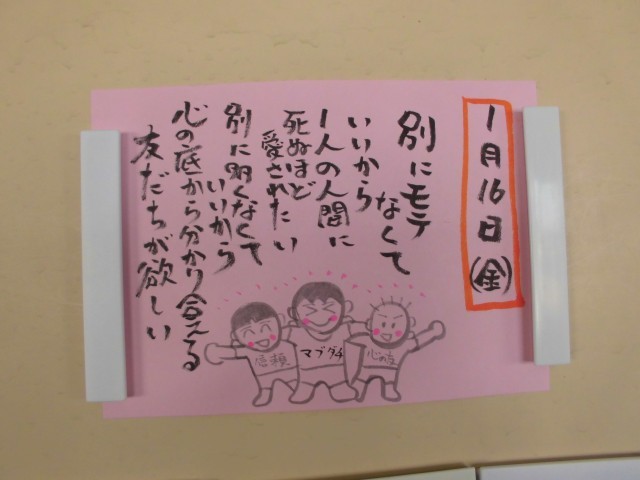 1月16日(金)
別にモテなくて
いいから
1人の人間に
死ぬほど
愛されたい
別に多くなくて
いいから
心の底から分かり合える
友だちが欲しい
信頼
マブダチ
心の友